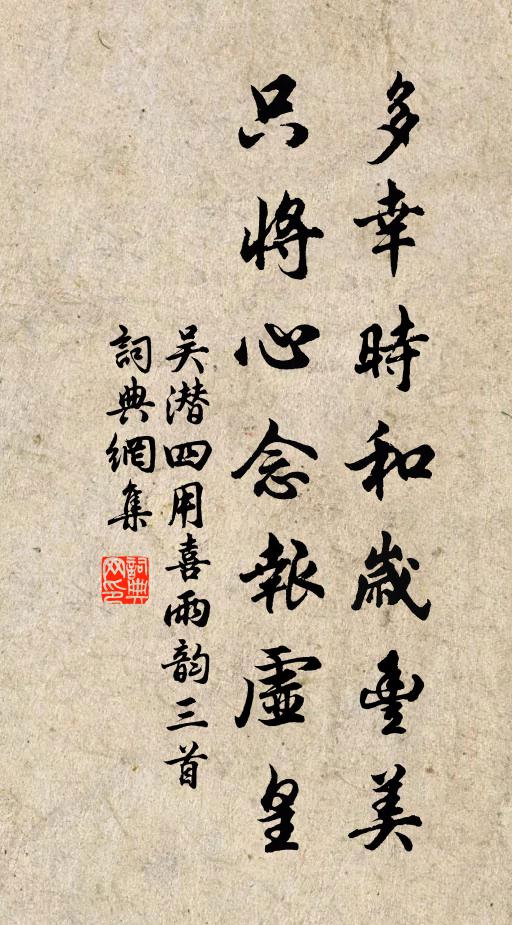 多幸時和歲豐美
只將心念報虛皇
吴潜四用喜雨韵三首
詞典網集
詞典網印